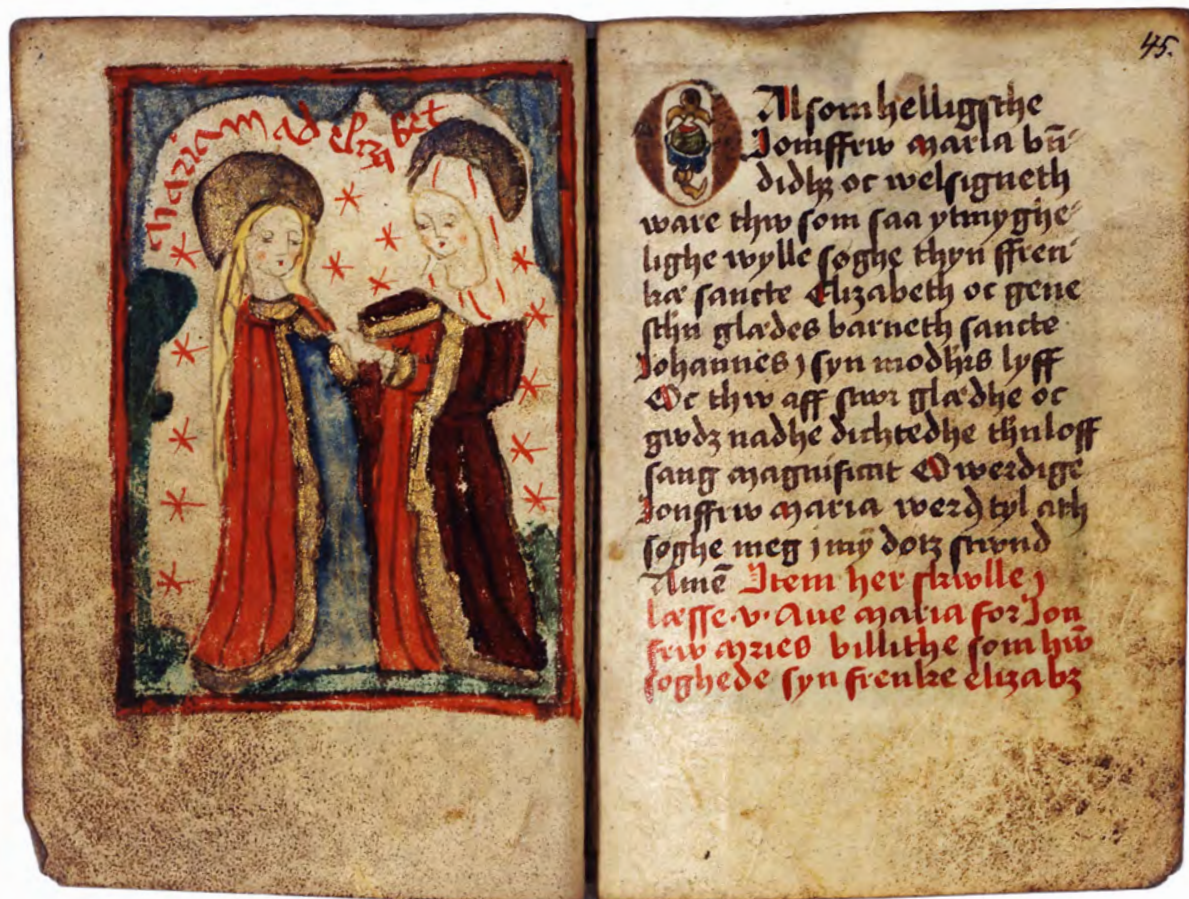 mariam ad elizabet
45.
O Alsom helligsthe
Jomffrw maria bñ
didhz oc welsigneth
ware thw som saa ytmyghe
lighe wylle søghe thyn ffren
kæ sancte Elizabeth oc gene
sthn glædes barneth sancte
Johannes j syn modhrs lyff
Oc thw aff stwr glædhe oc
gwdz nadhe dichtedhe thn loff
sang magnificat O werdige
Jonffrw maria werd tyl ath
søghe meg j mÿ døtz stwnd
Amē Item her skwlle j
læsse .v. Aue maria for Jon
frw mries billithe som hw̄
søghede syn frenke elizabz